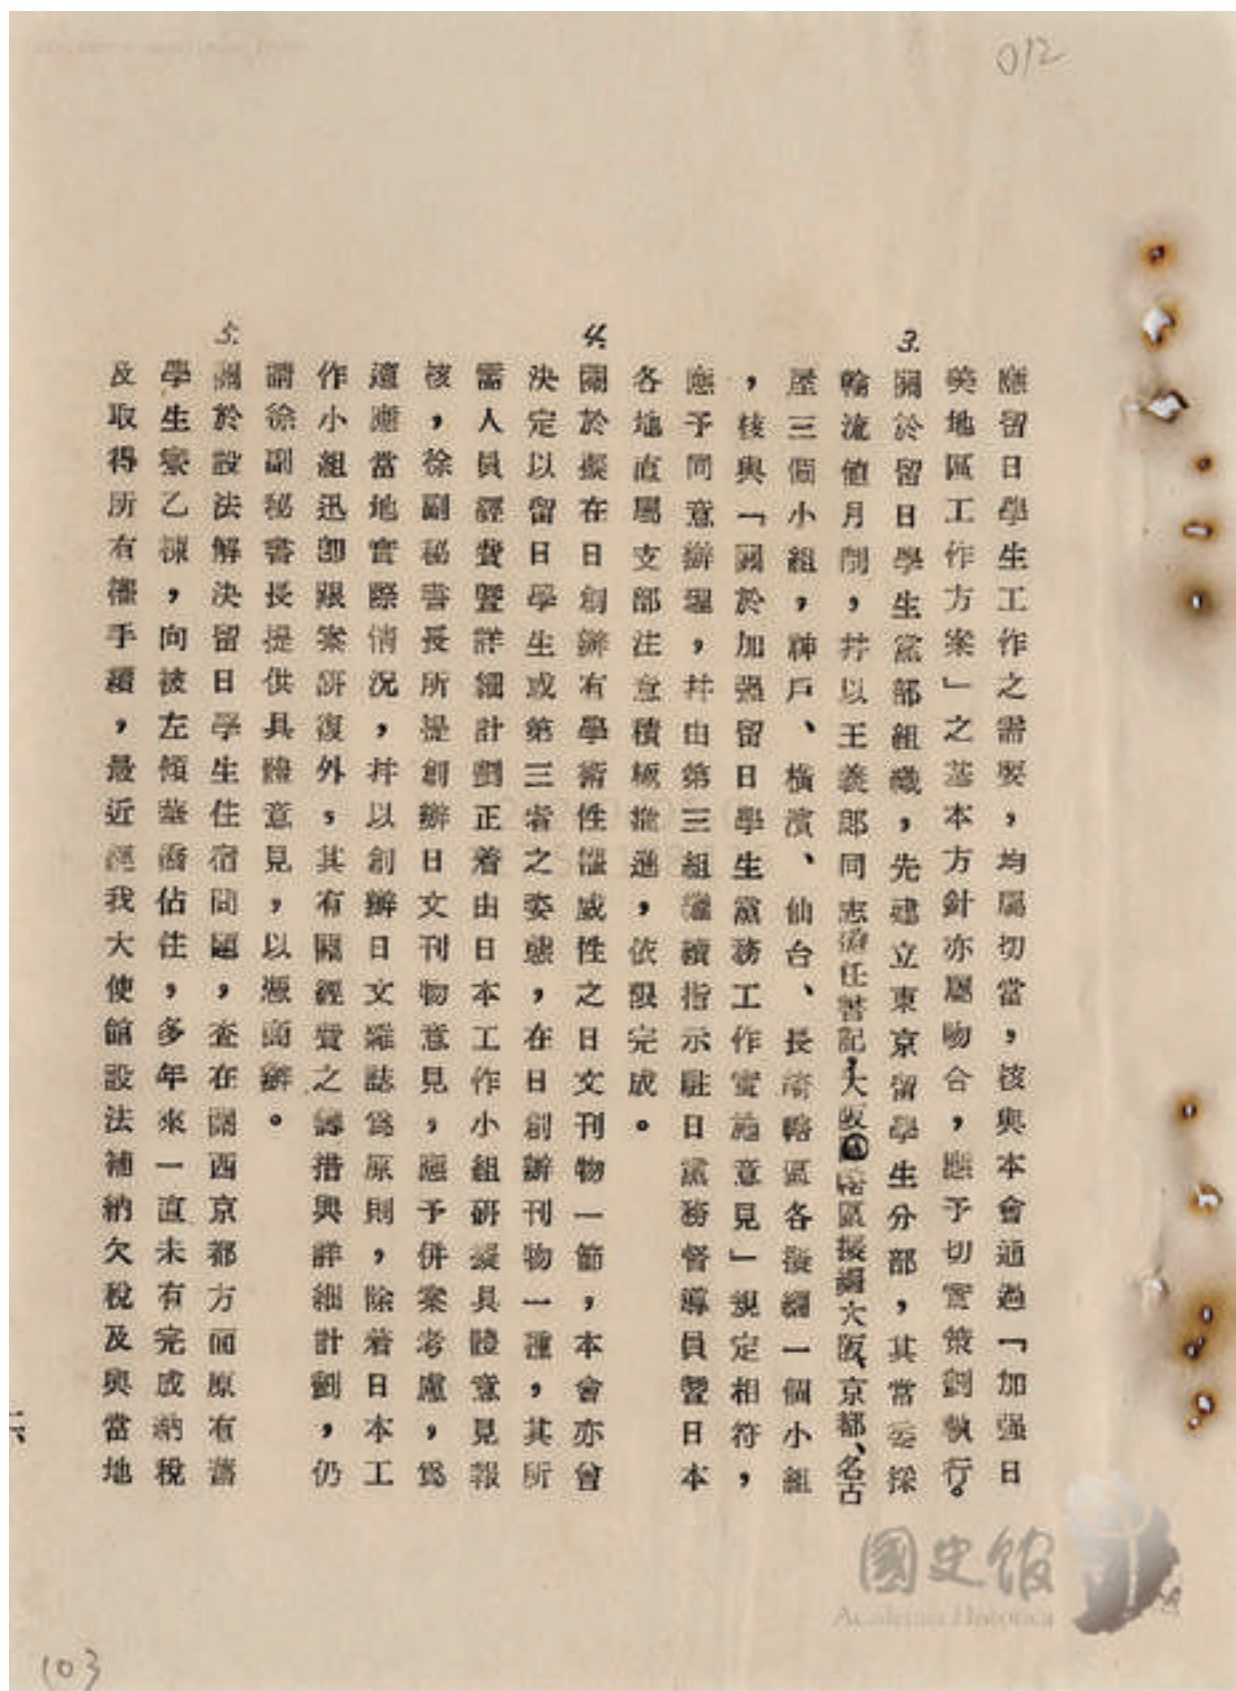 012
應留日學生工作之需要，均屬切當，核與本會通過「加强日
美地區工作方案」之基本方針亦屬吻合，應予切實策劃執行。
3.關於留日學生黨部組織，先建立東京留學生分部，其常委採
輪流值月制，并以王義郎同志擔任書記，大阪區擬編大阪、京都、名古
屋三個小組，神戶、橫濱、仙台、長崎區各擬編一個小組
，核與「關於加强留日學生黨務工作實施意見」規定相符，
應予同意辦理，并由第三組繼續指示駐日黨務督導員暨日本
各地直屬支部注意積極推進，依限完成。
4.關於擬在日創辦有學術性權威性之日文刊物一節，本會亦曾
決定以留日學生或第三者之姿態，在日創辦刊物一種，其所
需人員經費暨詳細計劃正着由日本工作小組研擬具體意見報
核，徐副秘書長所提創辦日文刊物意見，應予併案考慮，爲
適應當地實際情況，并以創辦日文雜誌爲原則，除着日本工
作小組迅即跟案研復外，其有關經費之籌措與詳細計劃，仍
請徐副秘書長提供具體意見，以憑商辦。
5.關於設法解決留日學生住宿問題，查在關西京都方面原有舊
學生寮乙棟，向被左傾華僑佔住，多年來一直未有完成納稅
及取得所有權手續，最近經我大使館設法補納欠稅及與當地
六
國史館
Academia Historica
103